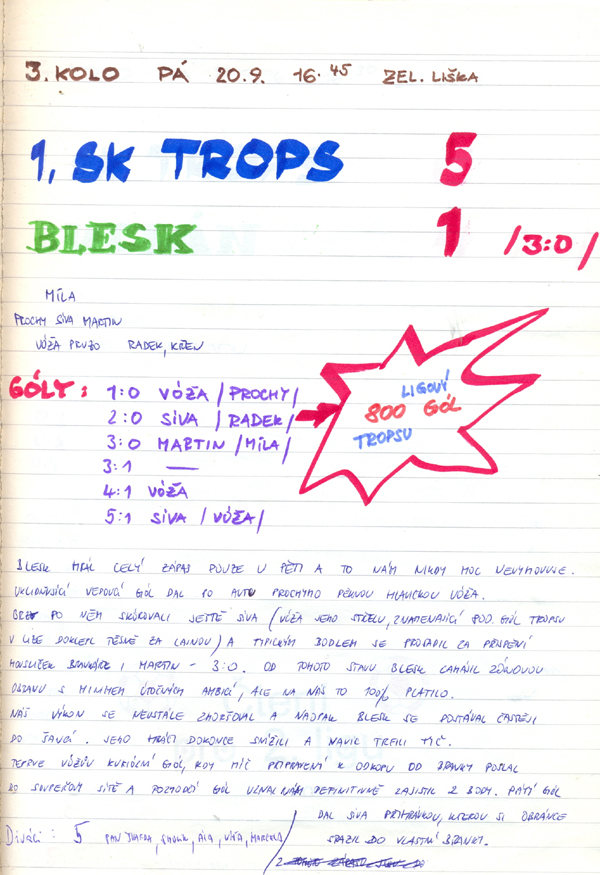 3. KOLO PÁ 20.9. 16.45 ZEL. LIŠKA
1. SK TROPS 5
BLESK 1 /3:0/
MÍLA
PROCHY SÍVA MARTIN
VÓŽA PRUZO RADEK, KŘEN
GÓLY: 1:0 VÓŽA /PROCHY/
2:0 SÍVA /RADEK/
3:0 MARTIN /MÍLA/
3:1 —
4:1 VÓŽA
5:1 SÍVA /VÓŽA/
LIGOVÝ
800 GÓL
TROPSU
BLESK HRÁL CELÝ ZÁPAS POUZE V PĚTI A TO NÁM NIKDY MOC NEVYHOVUJE.
UKLIDŇUJÍCÍ VEDOUCÍ GÓL DAL PO AUTU PROCHYHO PĚKNOU HLAVIČKOU VÓŽA.
BRZY PO NĚM SKÓROVALI JEŠTĚ SÍVA (VÓŽA JEHO STŘELU, ZNAMENAJÍCÍ 800. GÓL TROPSU
V LIZE DOKLEPL TĚSNĚ ZA LAJNOU) A TYPICKÝM BODLEM SE PROSADIL ZA PŘISPĚNÍ
BRANKÁŘE I MARTIN - 3:0. OD TOHOTO STAVU BLESK ZAHÁJIL ZÓNOVOU
OBRANU S MINIMEM ÚTOČNÝCH AMBICÍ, ALE NA NÁS TO 100% PLATILO.
NÁŠ VÝKON SE NEUSTÁLE ZHORŠOVAL A NAOPAK BLESK SE DOSTÁVAL ČASTĚJI
DO ŠANCÍ. JEHO HRÁČI DOKONCE SNÍŽILI A NAVÍC TREFILI TYČ.
TEPRVE VÓŽŮV KURIÓZNÍ GÓL, KDY MÍČ PŘIPRAVENÝ K ODKOPU OD BRANKY POSLAL
DO SOUPEŘOVY SÍTĚ A ROZHODČÍ GÓL UZNAL NÁM DEFINITIVNĚ ZAJISTIL 2 BODY. PÁTÝ GÓL
DAL SÍVA PŘIHRÁVKOU, KTEROU SI OBRÁNCE
SRAZIL DO VLASTNÍ BRANKY.
DIVÁCI: 5 PAN